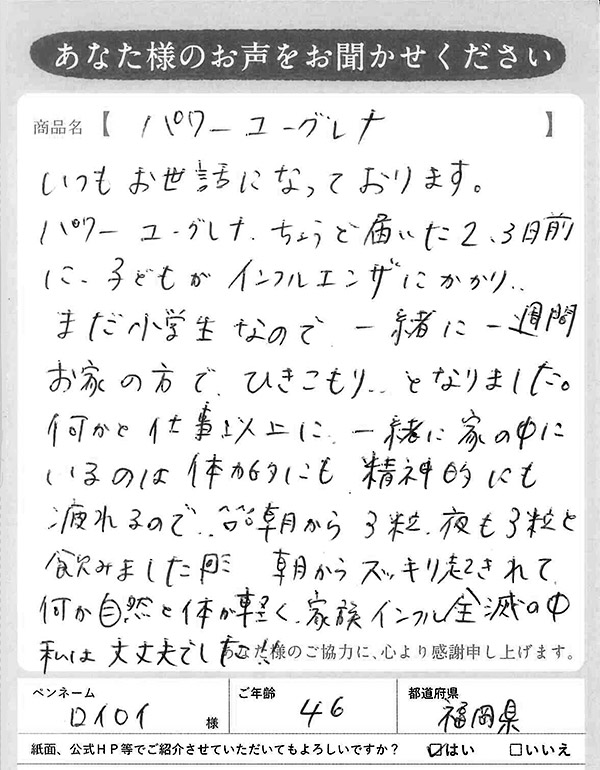 あなた様のお声をお聞かせください
商品名【 パワーユーグレナ 】
いつもお世話になっております。
パワーユーグレナ、ちょうど届いた2、3日前
に、子どもがインフルエンザにかかり、、
まだ小学生なので、一緒に一週間
お家の方で、ひきこもり、、となりました。
何かと仕事以上に、一緒に家の中に
いるのは体力的にも、精神的にも
疲れるので、、朝から3粒、夜も3粒と
飲みました 朝からスッキリ起きれて、
何か自然と体が軽く、家族インフル全滅の中
私は大丈夫でした!!
あなた様のご協力に、心より感謝申し上げます。
ペンネーム ご年齢 都道府県
ロイロイ 様 46 福岡県
紙面、公式HP等でご紹介させていただいてもよろしいですか? ☑はい □いいえ